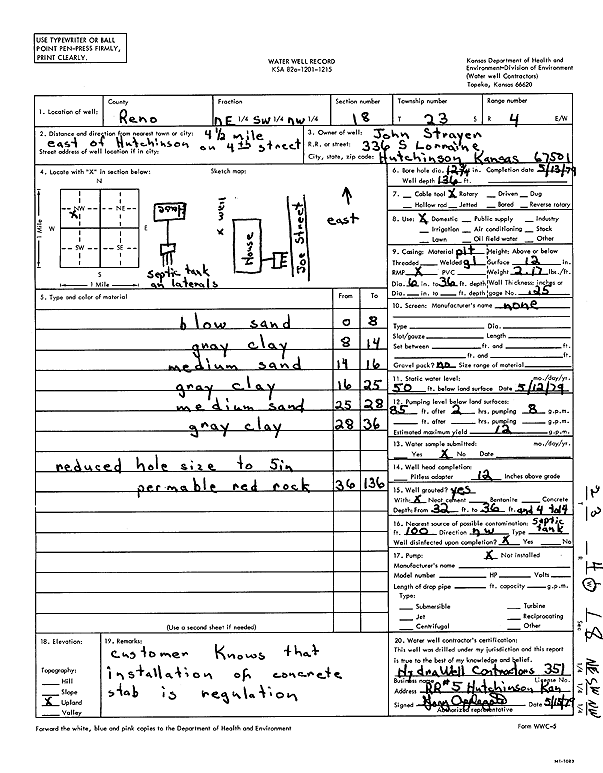 USE TYPEWRITER OR BALL
POINT PEN-PRESS FIRMLY,
PRINT CLEARLY.
WATER WELL RECORD
KSA 82a-1201-1215
Kansas Department of Health and
Environment-Division of Environment
(Water well Contractors)
Topeka, Kansas 66620
1. Location of well: County Reno Fraction NE 1/4 SW 1/4 NW 1/4 Section number 18 Township number T 23 S Range number R 4 E/W
2. Distance and direction from nearest town or city: 4 1/2 mile
east of Hutchinson on 4th street
Street address of well location if in city:
3. Owner of well: John Strayer
R.R. or street: 336 S Lorraine
City, state, zip code: Hutchinson Kansas 67501
4. Locate with "X" in section below: Sketch map:
N
NW NE
X
W E
SW SE
S
1 Mile
1 Mile
House
septic tank
an laterals
x well
House
Joe Street
east
6. Bore hole dia. in. Completion date 5/13/79
Well depth 136 ft.
7. Cable tool X Rotary Driven Dug
Hollow rod Jetted Bored Reverse rotary
8. Use: X Domestic Public supply Industry
Irrigation Air conditioning Stock
Lawn Oil field water Other
9. Casing: Material Height: Above or below
Threaded Welded gl Surface 12 in.
RMP X PVC Weight 2.17 lbs./ft.
Dia. 6 in. to 36 ft. depth Wall Thickness: inches or
Dia. in. to ft. depth gage No. .125
5. Type and color of material From To
blow sand 0 8
gray clay 8 14
medium sand 14 16
gray clay 16 25
medium sand 25 28
gray clay 28 36
reduced hole size to 5in
permable red rock 36 136
(Use a second sheet if needed)
10. Screen: Manufacturer's name none
Type Dia.
Slot/gauze Length
Set between ft. and ft.
ft. and ft.
Gravel pack? no Size range of material
11. Static water level: mo./day/yr.
50 ft. below land surface Date 5/12/79
12. Pumping level below land surfaces:
85 ft. after 2 hrs. pumping 8 g.p.m.
ft. after hrs. pumping g.p.m.
Estimated maximum yield 12 g.p.m.
13. Water sample submitted: mo./day/yr.
Yes X No Date
14. Well head completion:
Pitless adapter 12 Inches above grade
15. Well grouted? yes
With: X Neat cement Bentonite Concrete
Depth: From 32 ft. to 36 ft. and 4 to 4
16. Nearest source of possible contamination: septic
ft. 100 Direction NW Type tank
Well disinfected upon completion? X Yes No
17. Pump: X Not installed
Manufacturer's name
Model number HP Volts
Length of drop pipe ft. capacity g.p.m.
Type:
Submersible Turbine
Jet Reciprocating
Centrifugal Other
18. Elevation:
Topography:
Hill
Slope
X Upland
Valley
19. Remarks:
customer knows that
installation of concrete
slab is regulation
20. Water well contractor's certification:
This well was drilled under my jurisdiction and this report
is true to the best of my knowledge and belief.
HydraWell Contractors 351
Business name License No.
Address RR#5 Hutchinson Kan
Signed Date 5/15/79
Authorized representative
Forward the white, blue and pink copies to the Department of Health and Environment
Form WWC-5
T 23
R 4 W
Sec 18
1/4 1/4 1/4 NE SW NW